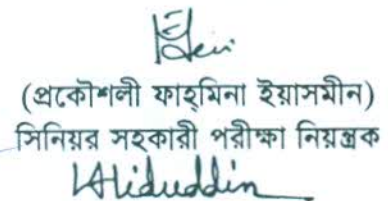 (প্রকৌশলী ফাহ্‌মিনা ইয়াসমীন)
সিনিয়র সহকারী পরীক্ষা নিয়ন্ত্রক